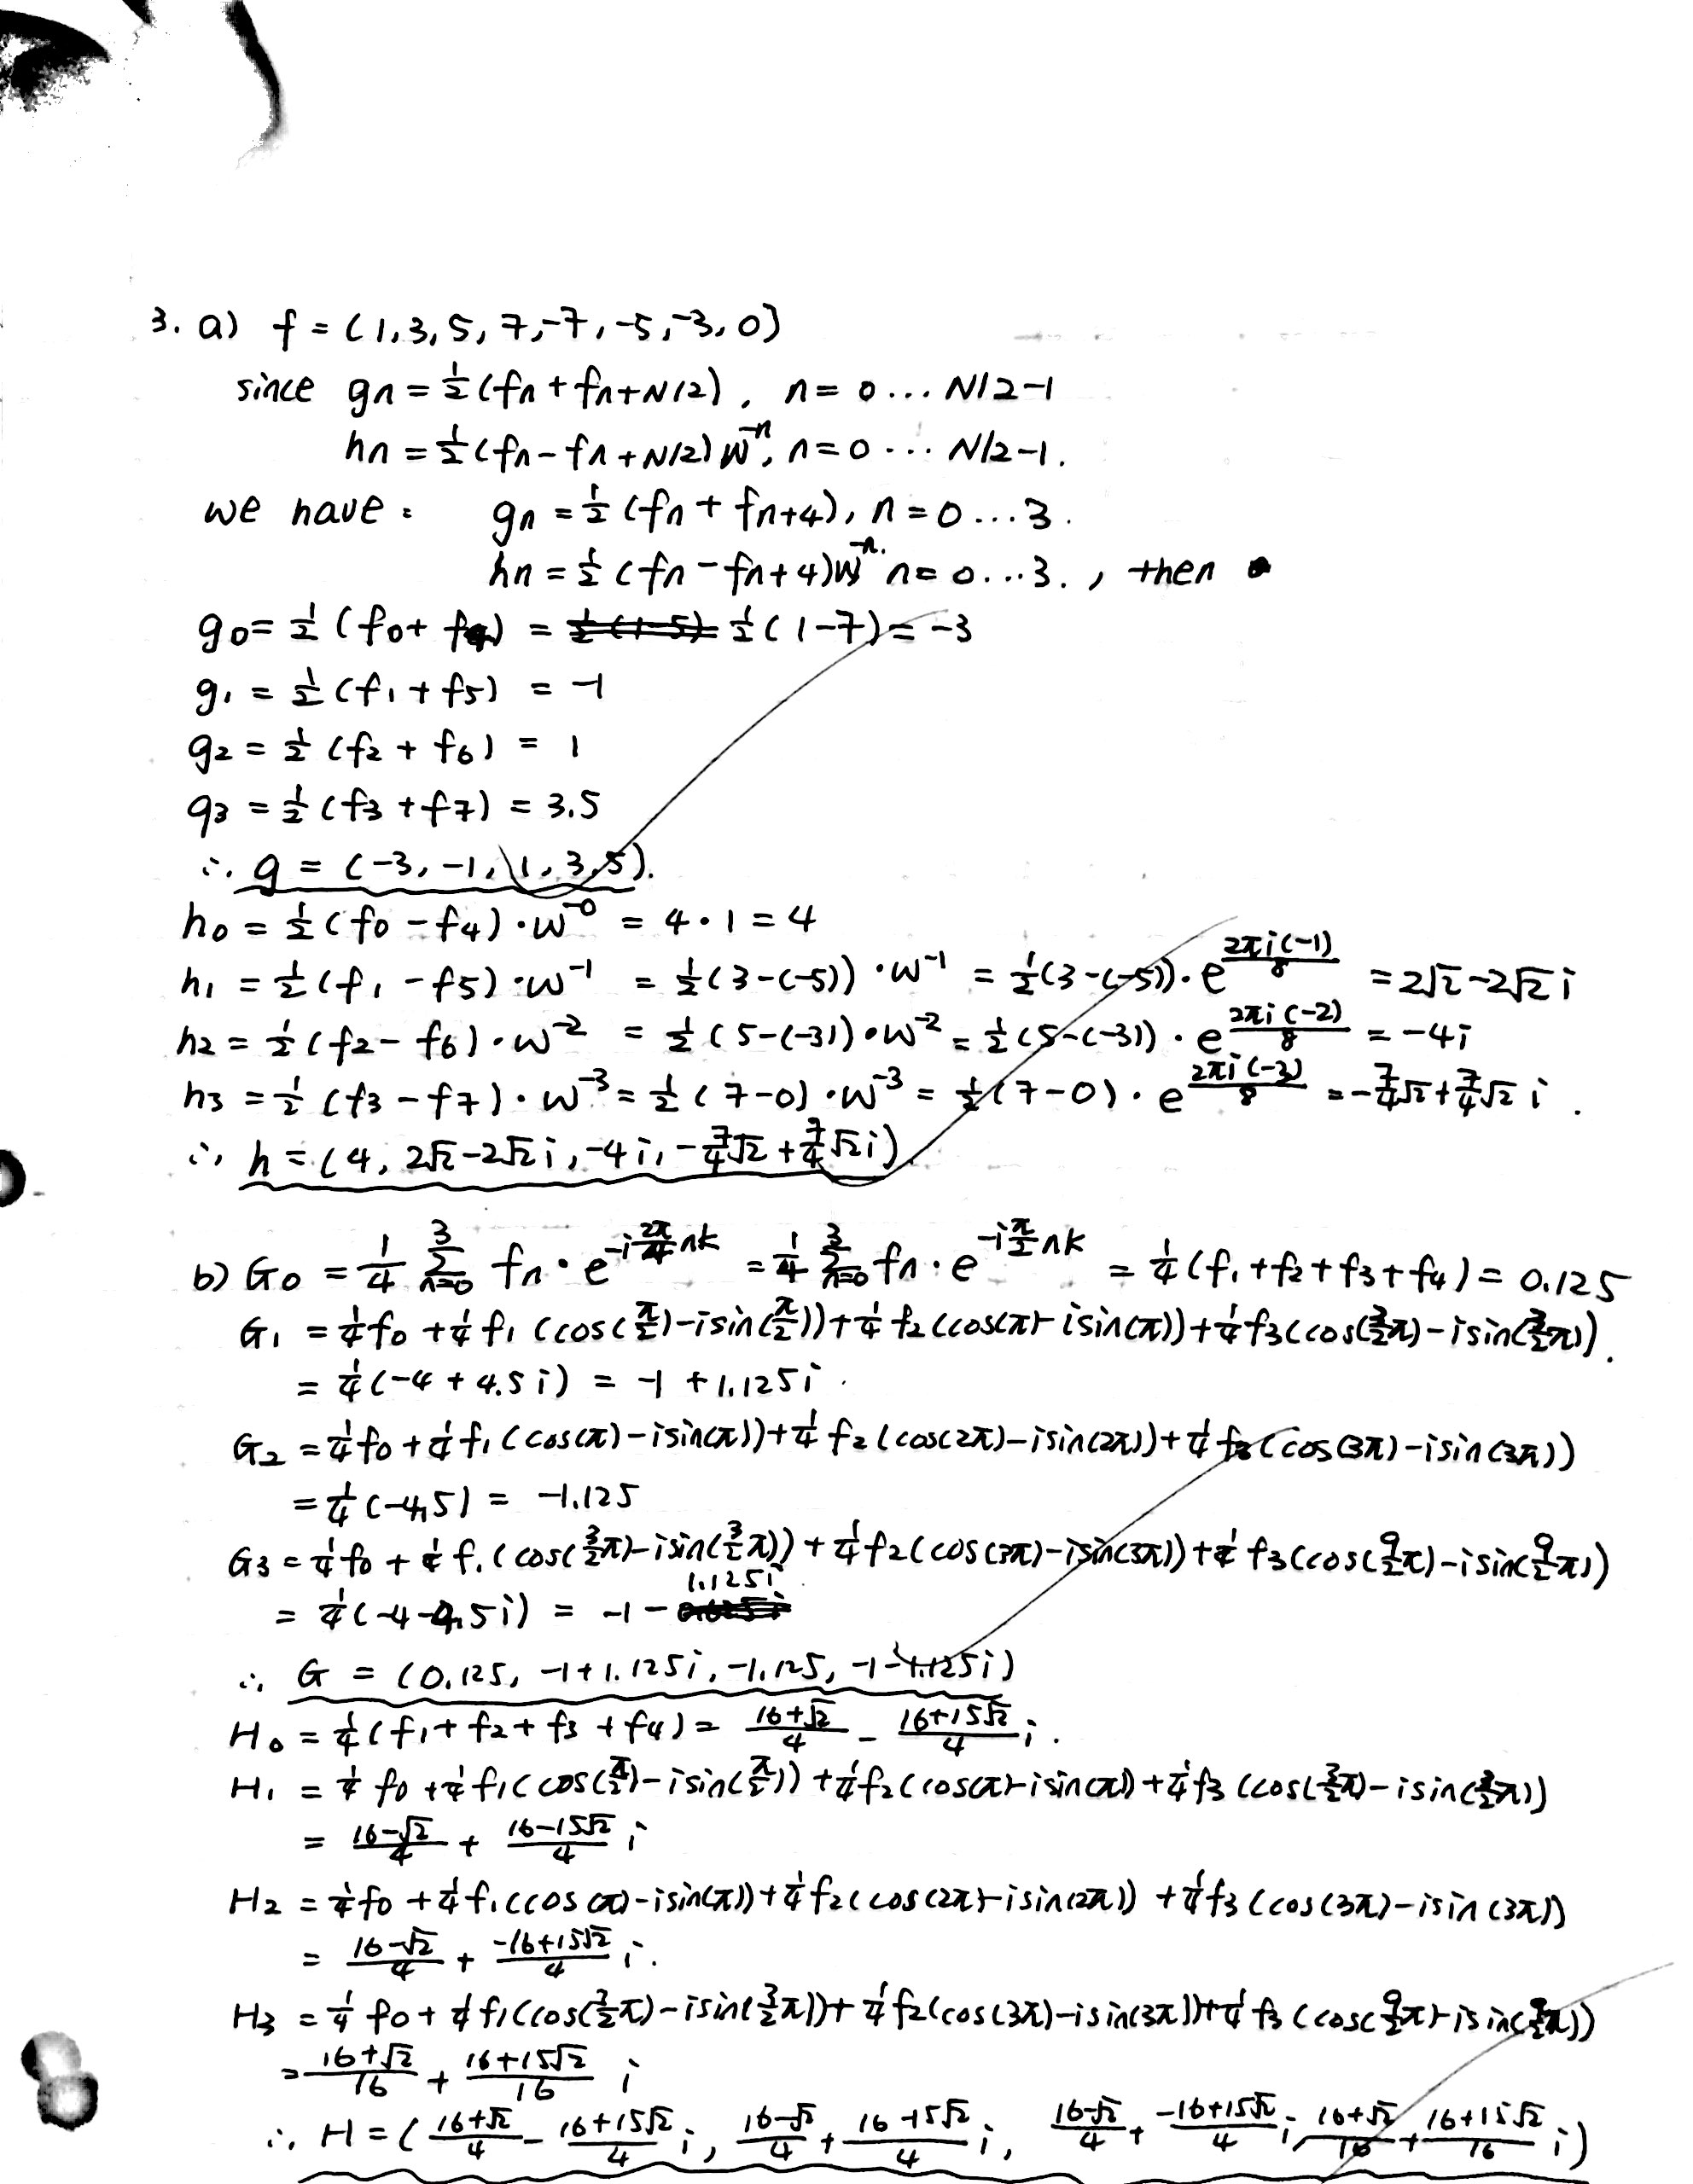 3. a) f = (1, 3, 5, 7, -7, -5, -3, 0)
since gn = 1/2 (fn + fn+N/2), n = 0 ... N/2-1
hn = 1/2 (fn - fn+N/2) W^-n, n = 0 ... N/2-1.
we have: gn = 1/2 (fn + fn+4), n = 0 ... 3.
hn = 1/2 (fn - fn+4) W^-n. n = 0 ... 3. , then
g0 = 1/2 (f0 + f4) = 1/2 (1-7) = -3
g1 = 1/2 (f1 + f5) = -1
g2 = 1/2 (f2 + f6) = 1
g3 = 1/2 (f3 + f7) = 3.5
∴ g = (-3, -1, 1, 3.5).
h0 = 1/2 (f0 - f4) · W^-0 = 4 · 1 = 4
h1 = 1/2 (f1 - f5) · W^-1 = 1/2 (3-(-5)) · W^-1 = 1/2 (3-(-5)) · e^(2πi(-1)/8) = 2√2 - 2√2 i
h2 = 1/2 (f2 - f6) · W^-2 = 1/2 (5-(-3)) · W^-2 = 1/2 (5-(-3)) · e^(2πi(-2)/8) = -4i
h3 = 1/2 (f3 - f7) · W^-3 = 1/2 (7-0) · W^-3 = 1/2 (7-0) · e^(2πi(-3)/8) = -7/4 √2 + 7/4 √2 i .
∴ h = (4, 2√2 - 2√2 i, -4i, -7/4 √2 + 7/4 √2 i)
b) G0 = 1/4 Σ_{n=0}^{3} fn · e^(-i 2π/4 nk) = 1/4 Σ_{n=0}^{3} fn · e^(-i π/2 nk) = 1/4 (f1 + f2 + f3 + f4) = 0.125
G1 = 1/4 f0 + 1/4 f1 (cos(π/2) - isin(π/2)) + 1/4 f2 (cos(π) - isin(π)) + 1/4 f3 (cos(3/2 π) - isin(3/2 π)).
= 1/4 (-4 + 4.5i) = -1 + 1.125i .
G2 = 1/4 f0 + 1/4 f1 (cos(π) - isin(π)) + 1/4 f2 (cos(2π) - isin(2π)) + 1/4 f3 (cos(3π) - isin(3π))
= 1/4 (-4.5) = -1.125
G3 = 1/4 f0 + 1/4 f1 (cos(3/2 π) - isin(3/2 π)) + 1/4 f2 (cos(3π) - isin(3π)) + 1/4 f3 (cos(9/2 π) - isin(9/2 π))
= 1/4 (-4 - 4.5i) = -1 - 1.125i
∴ G = (0.125, -1 + 1.125i, -1.125, -1 - 1.125i)
H0 = 1/4 (f1 + f2 + f3 + f4) = (16+√2)/4 - (16+15√2)/4 i .
H1 = 1/4 f0 + 1/4 f1 (cos(π/2) - isin(π/2)) + 1/4 f2 (cos(π) - isin(π)) + 1/4 f3 (cos(3/2 π) - isin(3/2 π))
= (16-√2)/4 + (16-15√2)/4 i
H2 = 1/4 f0 + 1/4 f1 (cos(π) - isin(π)) + 1/4 f2 (cos(2π) - isin(2π)) + 1/4 f3 (cos(3π) - isin(3π))
= (16-√2)/4 + (-16+15√2)/4 i .
H3 = 1/4 f0 + 1/4 f1 (cos(3/2 π) - isin(3/2 π)) + 1/4 f2 (cos(3π) - isin(3π)) + 1/4 f3 (cos(9/2 π) - isin(9/2 π))
= (16+√2)/16 + (16+15√2)/16 i
∴ H = ( (16+√2)/4 - (16+15√2)/4 i, (16-√2)/4 + (16-15√2)/4 i, (16-√2)/4 + (-16+15√2)/4 i, (16+√2)/16 + (16+15√2)/16 i )